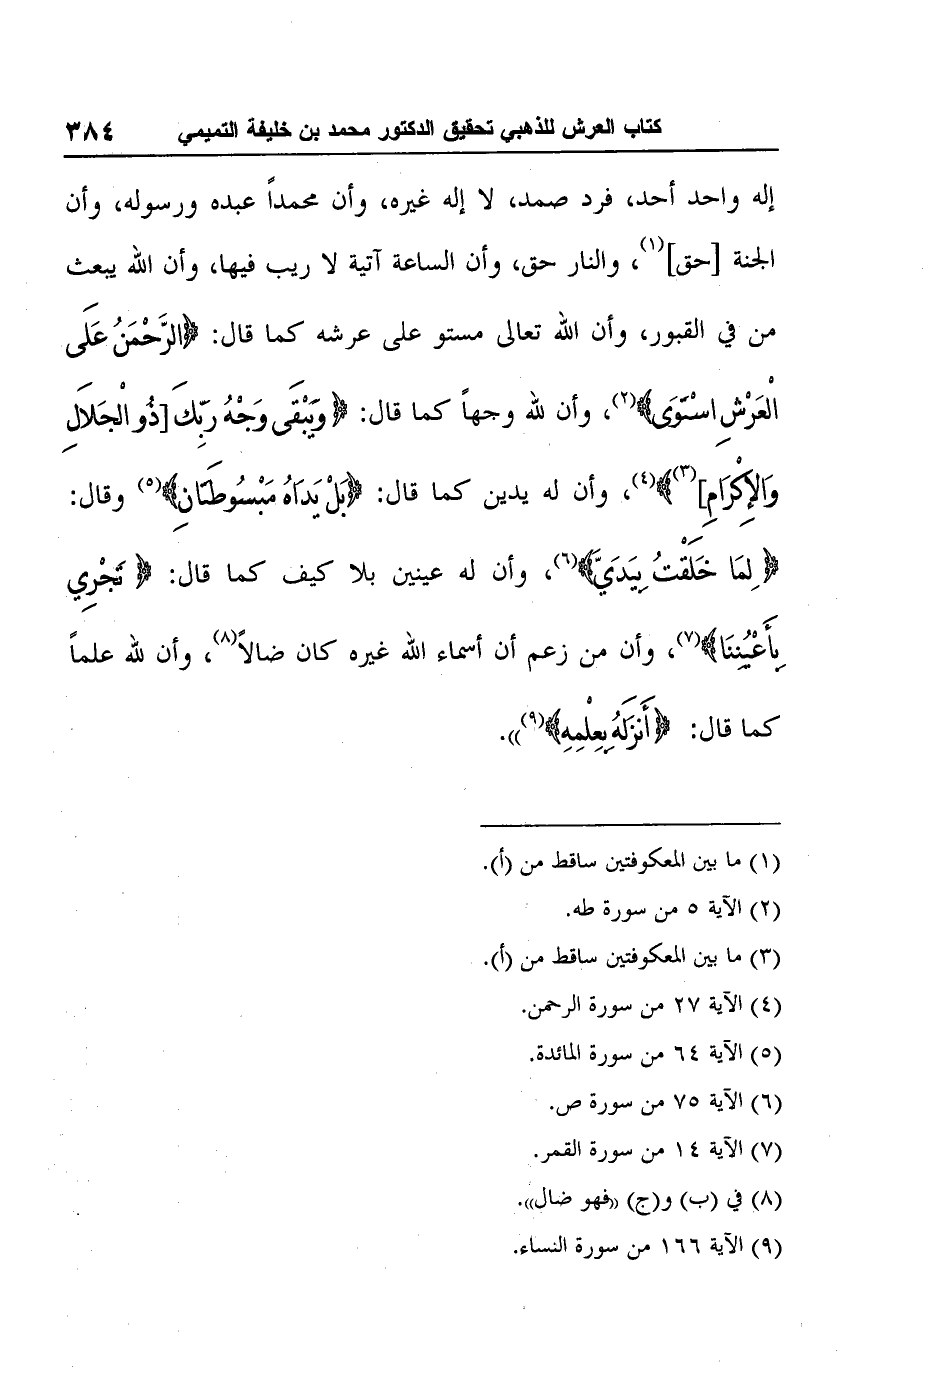 كتاب العرش للذهبي تحقيق الدكتور محمد بن خليفة التميمي ٣٨٤
إله واحد أحد، فرد صمد، لا إله غيره، وأن محمداً عبده ورسوله، وأن
الجنة [حق](١)، والنار حق، وأن الساعة آتية لا ريب فيها، وأن الله يبعث
من في القبور، وأن الله تعالى مستو على عرشه كما قال: ﴿الرَّحْمَنُ عَلَى
الْعَرْشِ اسْتَوَى﴾(٢)، وأن لله وجهاً كما قال: ﴿وَيَبْقَى وَجْهُ رَبِّكَ [ذُو الْجَلالِ
وَالإِكْرَامِ](٣)﴾(٤)، وأن له يدين كما قال: ﴿بَلْ يَدَاهُ مَبْسُوطَتَانِ﴾(٥) وقال:
﴿لِمَا خَلَقْتُ بِيَدَيَّ﴾(٦)، وأن له عينين بلا كيف كما قال: ﴿تَجْرِي
بِأَعْيُنِنَا﴾(٧)، وأن من زعم أن أسماء الله غيره كان ضالاً(٨)، وأن لله علماً
كما قال: ﴿أَنزَلَهُ بِعِلْمِهِ﴾(٩)».
(١) ما بين المعكوفتين ساقط من (أ).
(٢) الآية ٥ من سورة طه.
(٣) ما بين المعكوفتين ساقط من (أ).
(٤) الآية ٢٧ من سورة الرحمن.
(٥) الآية ٦٤ من سورة المائدة.
(٦) الآية ٧٥ من سورة ص.
(٧) الآية ١٤ من سورة القمر.
(٨) في (ب) و(ج) «فهو ضال».
(٩) الآية ١٦٦ من سورة النساء.